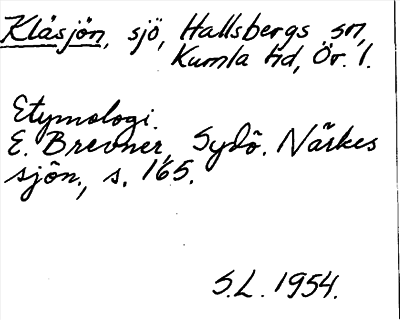 Klåsjön, sjö, Hallsbergs sn,
Kumla hd, Ör. l.
Etymologi.
E. Brevner, Sydö. Närkes
sjön., s. 165.
S.L. 1954.